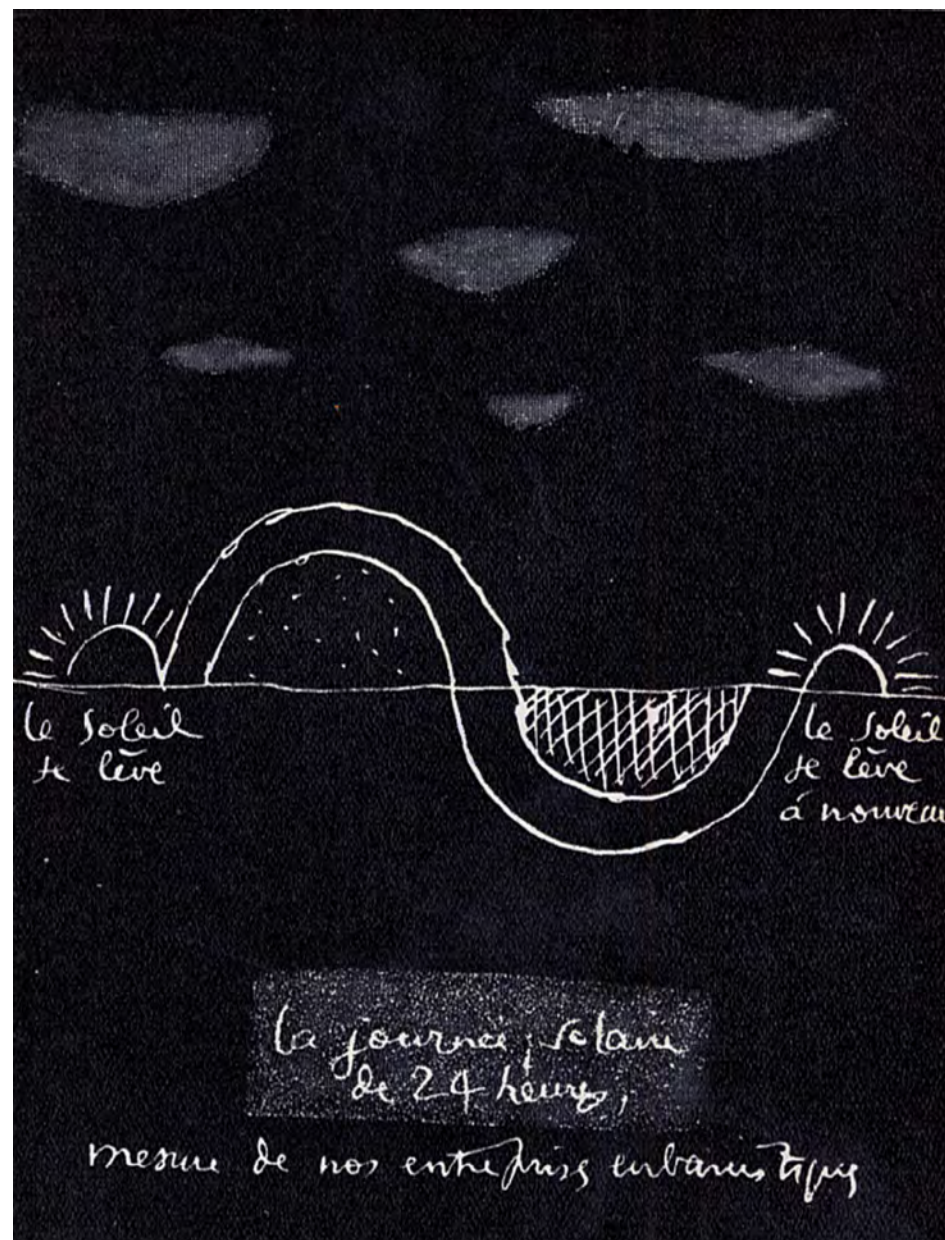 le soleil
se lève
le soleil
se lève
à nouveau
la journée solaire
de 24 heures,
mesure de nos entreprises urbanistiques